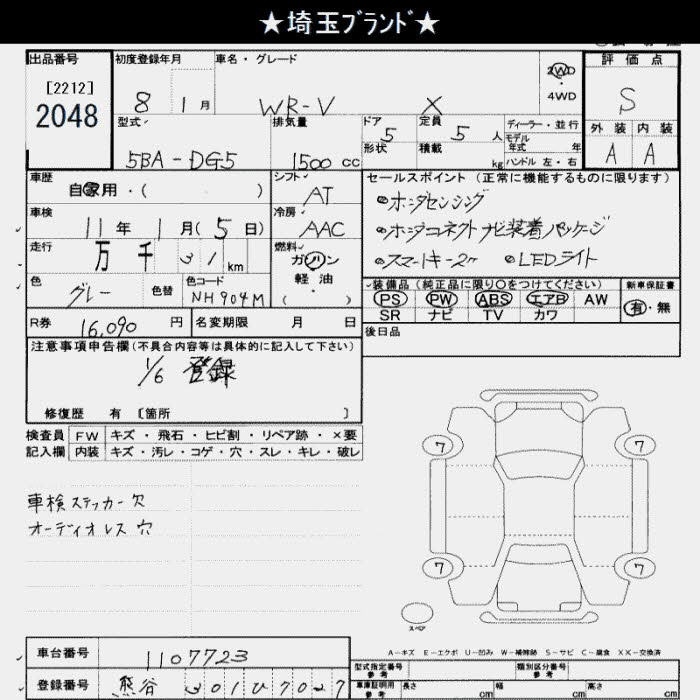 ★埼玉ブランド★
出品番号
[2212]
2048
初度登録年月
8 1月
車名・グレード
WR-V X
2WD
・
4WD
評価点
S
型式
5BA-DG5
排気量
1500 cc
ドア
5
形状
定員
5 人
積載
kg
ディーラー・並行
モデル
年式 年
ハンドル 左・右
外装 内装
A A
車歴
自家用・( )
シフト
AT
セールスポイント (正常に機能するものに限ります)
ホンダセンシング
ホンダコネクトナビ装着パッケージ
スマートキー2ケ LEDライト
車検
11年1月(5日)
冷房
AAC
走行
万千31km
燃料
ガソリン
軽油
( ・ )
色
グレー
色替
色コード
NH904M
装備品 (純正品に限り○をつけてください)
PS PW ABS エアB AW
SR ナビ TV カワ
新車保証書
有・無
R券 16,090円
名変期限 月 日
後日品
注意事項申告欄(不具合内容等は具体的に記入して下さい)
1/6 登録
修復歴 有 〔箇所 〕
検査員 FW キズ・飛石・ヒビ割・リペア跡・×要
記入欄 内装 キズ・汚レ・コゲ・穴・スレ・キレ・破レ
車検ステッカー欠
オーディオレス穴
7 7
7 7
スペア
A-キズ E-エクボ U-凹み W-補修跡 S-サビ C-腐食 XX-交換済
車台番号 1107723
登録番号 熊谷 301ひ7027
型式指定番号
参考
類別区分番号
参考
車庫証明用
参考
長さ cm 幅 cm 高さ cm